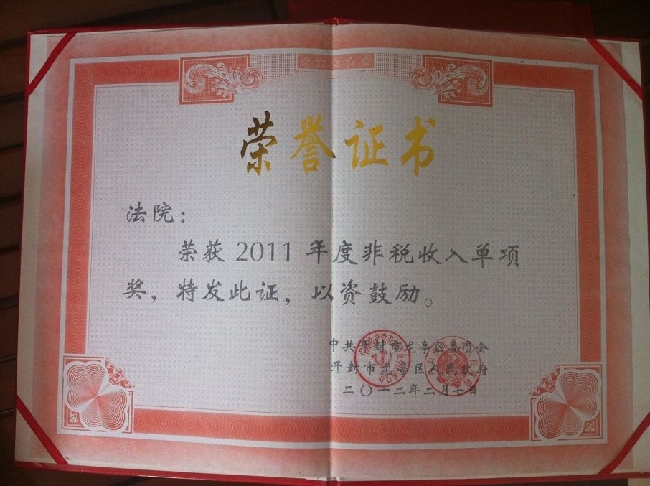 荣誉证书
法院：
荣获 2011 年度非税收入单项
奖，特发此证，以资鼓励。
中共开封市龙亭区委员会
开封市龙亭区人民政府
二〇一二年二月七日